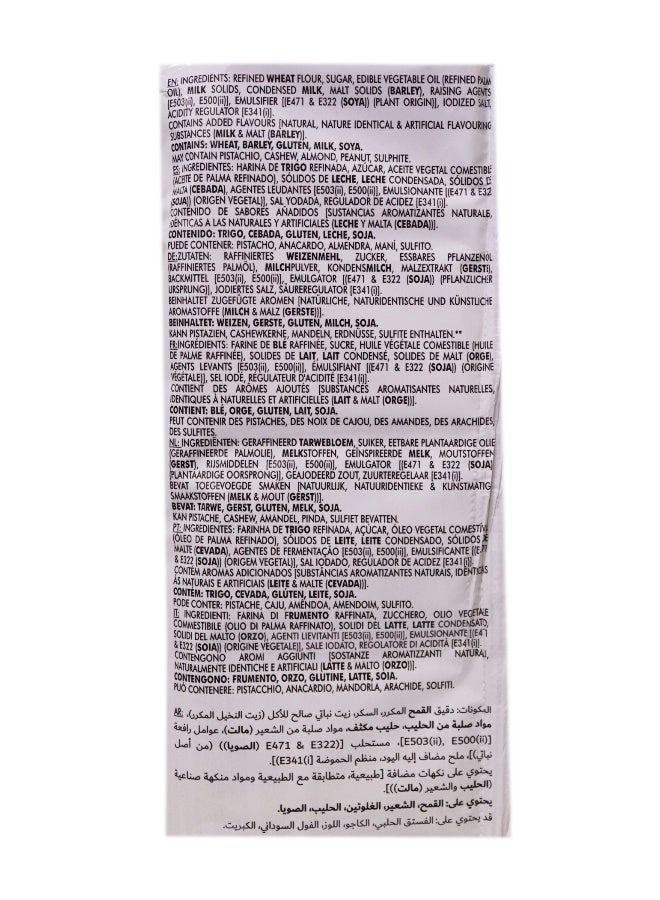 EN: INGREDIENTS: REFINED WHEAT FLOUR, SUGAR, EDIBLE VEGETABLE OIL (REFINED PALM
OIL), MILK SOLIDS, CONDENSED MILK, MALT SOLIDS (BARLEY), RAISING AGENTS
[E503(ii), E500(ii)], EMULSIFIER [(E471 & E322 (SOYA)) (PLANT ORIGIN)], IODIZED SALT,
ACIDITY REGULATOR [E341(i)].
CONTAINS ADDED FLAVOURS [NATURAL, NATURE IDENTICAL & ARTIFICIAL FLAVOURING
SUBSTANCES (MILK & MALT (BARLEY)].
CONTAINS: WHEAT, BARLEY, GLUTEN, MILK, SOYA.
MAY CONTAIN PISTACHIO, CASHEW, ALMOND, PEANUT, SULPHITE.
ES: INGREDIENTES: HARINA DE TRIGO REFINADA, AZÚCAR, ACEITE VEGETAL COMESTIBLE
(ACEITE DE PALMA REFINADO), SÓLIDOS DE LECHE, LECHE CONDENSADA, SÓLIDOS DE
MALTA (CEBADA), AGENTES LEUDANTES [E503(ii), E500(ii)], EMULSIONANTE [(E471 & E322
(SOJA)) (ORIGEN VEGETAL)], SAL YODADA, REGULADOR DE ACIDEZ [E341(i)].
CONTENIDO DE SABORES AÑADIDOS [SUSTANCIAS AROMATIZANTES NATURALES,
IDÉNTICAS A LAS NATURALES Y ARTIFICIALES (LECHE Y MALTA (CEBADA))].
CONTENIDO: TRIGO, CEBADA, GLUTEN, LECHE, SOJA.
PUEDE CONTENER: PISTACHO, ANACARDO, ALMENDRA, MANÍ, SULFITO.
DE:ZUTATEN: RAFFINIERTES WEIZENMEHL, ZUCKER, ESSBARES PFLANZENÖL
(RAFFINIERTES PALMÖL), MILCHPULVER, KONDENSMILCH, MALZEXTRAKT (GERSTE),
BACKMITTEL [E503(ii), E500(ii)], EMULGATOR [(E471 & E322 (SOJA)) (PFLANZLICHER
URSPRUNG)], JODIERTES SALZ, SÄUREREGULATOR [E341(i)].
BEINHALTET ZUGEFÜGTE AROMEN [NATÜRLICHE, NATURIDENTISCHE UND KÜNSTLICHE
AROMASTOFFE (MILCH & MALZ (GERSTE))].
BEINHALTET: WEIZEN, GERSTE, GLUTEN, MILCH, SOJA.
KANN PISTAZIEN, CASHEWKERNE, MANDELN, ERDNÜSSE, SULFITE ENTHALTEN.**
FR:INGRÉDIENTS: FARINE DE BLÉ RAFFINÉE, SUCRE, HUILE VÉGÉTALE COMESTIBLE (HUILE
DE PALME RAFFINÉE), SOLIDES DE LAIT, LAIT CONDENSÉ, SOLIDES DE MALT (ORGE),
AGENTS LEVANTS [E503(ii), E500(ii)], EMULSIFIANT [(E471 & E322 (SOJA)) (ORIGINE
VÉGÉTALE)], SEL IODÉ, RÉGULATEUR D'ACIDITÉ [E341(i)].
CONTIENT DES ARÔMES AJOUTÉS [SUBSTANCES AROMATISANTES NATURELLES,
IDENTIQUES À NATURELLES ET ARTIFICIELLES (LAIT & MALT (ORGE))].
CONTIENT: BLÉ, ORGE, GLUTEN, LAIT, SOJA.
PEUT CONTENIR DES PISTACHES, DES NOIX DE CAJOU, DES AMANDES, DES ARACHIDES,
DES SULFITES.
NL: INGREDIËNTEN: GERAFFINEERD TARWEBLOEM, SUIKER, EETBARE PLANTAARDIGE OLIE
(GERAFFINEERDE PALMOLIE), MELKSTOFFEN, GEÏNSPIREERDE MELK, MOUTSTOFFEN
(GERST), RIJSMIDDELEN [E503(ii), E500(ii)], EMULGATOR [(E471 & E322 (SOJA)
(PLANTAARDIGE OORSPRONG)], GEAJODEERD ZOUT, ZUURTEREGELAAR [E341(i)].
BEVAT TOEGEVOEGDE SMAKEN [NATUURLIJK, NATUURIDENTIEKE & KUNSTMATIGE
SMAAKSTOFFEN (MELK & MOUT (GERST))].
BEVAT: TARWE, GERST, GLUTEN, MELK, SOJA.
KAN PISTACHE, CASHEW, AMANDEL, PINDA, SULFIET BEVATTEN.
PT: INGREDIENTES: FARINHA DE TRIGO REFINADA, AÇUCAR, ÓLEO VEGETAL COMESTÍVEL
(ÓLEO DE PALMA REFINADO), SÓLIDOS DE LEITE, LEITE CONDENSADO, SÓLIDOS DE
MALTE (CEVADA), AGENTES DE FERMENTAÇÃO [E503(ii), E500(ii)], EMULSIFICANTE [(E471
& E322 (SOJA)) (ORIGEM VEGETAL)], SAL IODADO, REGULADOR DE ACIDEZ [E341(i)].
CONTÉM AROMAS ADICIONADOS [SUBSTÂNCIAS AROMATIZANTES NATURAIS, IDÊNTICAS
ÀS NATURAIS E ARTIFICIAIS (LEITE & MALTE (CEVADA))].
CONTÉM: TRIGO, CEVADA, GLUTEN, LEITE, SOJA.
PODE CONTER: PISTACHE, CAJU, AMÊNDOA, AMENDOIM, SULFITO.
IT: INGREDIENTI: FARINA DI FRUMENTO RAFFINATA, ZUCCHERO, OLIO VEGETALE
COMMESTIBILE (OLIO DI PALMA RAFFINATO), SOLIDI DEL LATTE, LATTE CONDENSATO,
SOLIDI DEL MALTO (ORZO), AGENTI LIEVITANTI [E503(ii), E500(ii)], EMULSIONANTE [(E471
& E322 (SOIA)) (ORIGINE VEGETALE)], SALE IODATO, REGOLATORE DI ACIDITÀ [E341(i)].
CONTENGONO AROMI AGGIUNTI [SOSTANZE AROMATIZZANTI NATURALI,
NATURALMENTE IDENTICHE E ARTIFICIALI (LATTE & MALTO (ORZO))].
CONTENGONO: FRUMENTO, ORZO, GLUTINE, LATTE, SOIA.
PUÒ CONTENERE: PISTACCHIO, ANACARDIO, MANDORLA, ARACHIDE, SOLFITI.
AR: المكونات: دقيق القمح المكرر، السكر، زيت نباتي صالح للأكل (زيت النخيل المكرر)،
مواد صلبة من الحليب، حليب مكثف، مواد صلبة من الشعير (مالت)، عوامل رافعة
[E503(ii), E500(ii)], مستحلب [(E471 & E322 (الصويا)) (من أصل
نباتي)]، ملح مضاف إليه اليود، منظم الحموضة [E341(i)].
يحتوي على نكهات مضافة [طبيعية، متطابقة مع الطبيعية ومواد منكهة صناعية
(الحليب والشعير (مالت))].
يحتوي على: القمح، الشعير، الغلوتين، الحليب، الصويا.
قد يحتوي على: الفستق الحلبي، الكاجو، اللوز، الفول السوداني، الكبريت.